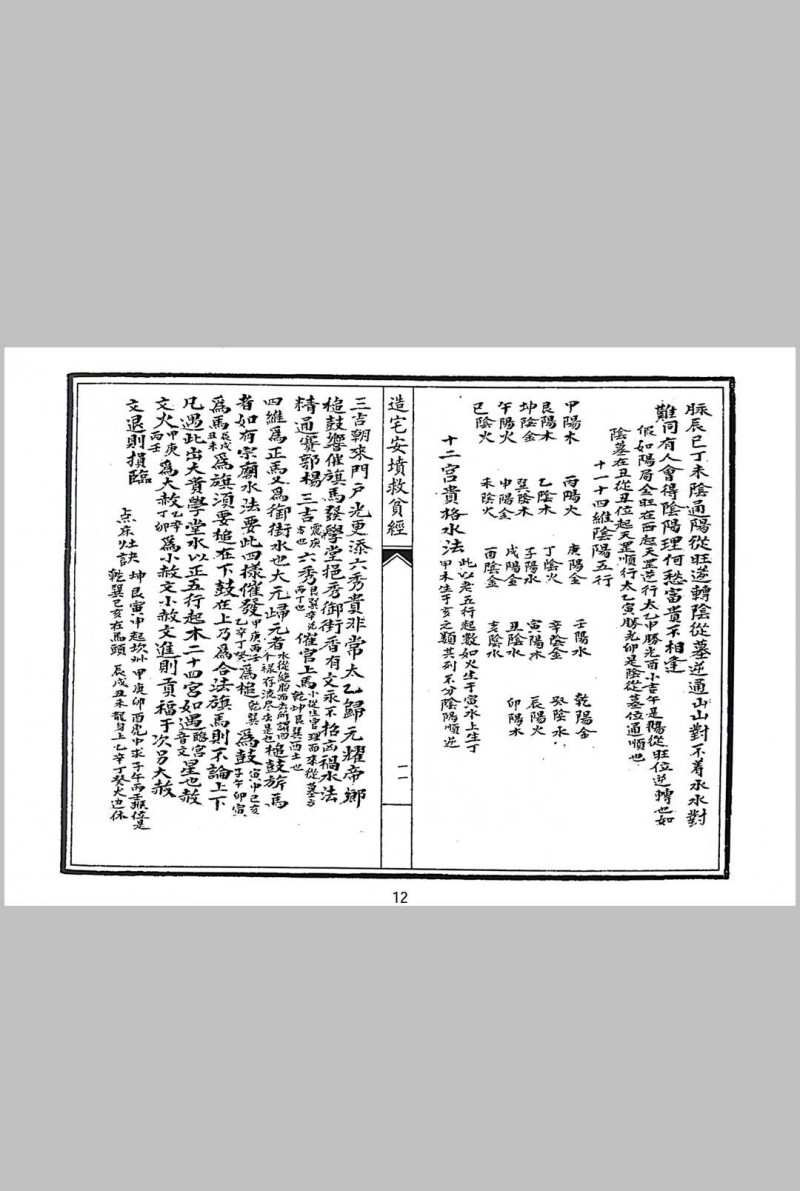 脉辰巳丁未陰通陽從旺逆轉陰從墓逆通山山對不着永水對
難同有人會得陰陽理何愁富貴不相逢
假如陽局金旺在酉起天罡逆行太乙申勝光酉小吉午是陽從旺位逆轉也如
陰墓在丑從丑位起天罡順行太乙寅勝光卯是陰從墓位通順也
十一十四維陰陽五行
甲陽木 丙陽火 庚陽金 壬陽水 乾陽金
艮陽木 乙陰木 丁陰火 辛陰金 癸陰水
坤陰金 巽陰木 子陽水 寅陽木 辰陽火
午陽火 申陽金 戌陽金 丑陰水 卯陽木
巳陰火 未陰火 酉陰金 亥陰水
十二宮貴格水法
此以老五行起數如火生于寅水上生丁
甲木生于亥之類共列不分陰陽順逆
造宅安墳救貧經
一一
三吉朝來門戶光更添六秀貴非常太乙歸元耀帝鄉
槌鼓響催旗馬發學堂挹秀御街香有文永不招凶禍水法
精通賽郭楊三吉震庚亥也六秀艮巽辛兌丙丁也催官上馬乾坤艮巽
四維為正馬又為御街水也大元歸元者槌鼓旂馬
者如有宗廟水法要此四樣催發甲庚丙壬乙辛丁癸為槌乾巽為鼓寅申巳亥子午卯寅
為馬辰戌丑未為旗須要槌在下鼓在上乃為合法旗馬則不論上下
凡遇此出大貴學堂水以正五行起木二十四宮如遇臨官音文星也赦
文火甲庚丙壬為大赦乙辛丁卯為小赦文小赦文進則貢福于次呂大赦
文退則損臨
点床灶訣
坤艮寅申起坎州 甲庚卯酉虎中求子午丙壬猴位是
乾巽己亥在馬頭 辰戌丑未龍身上乙辛丁癸犬边休
12